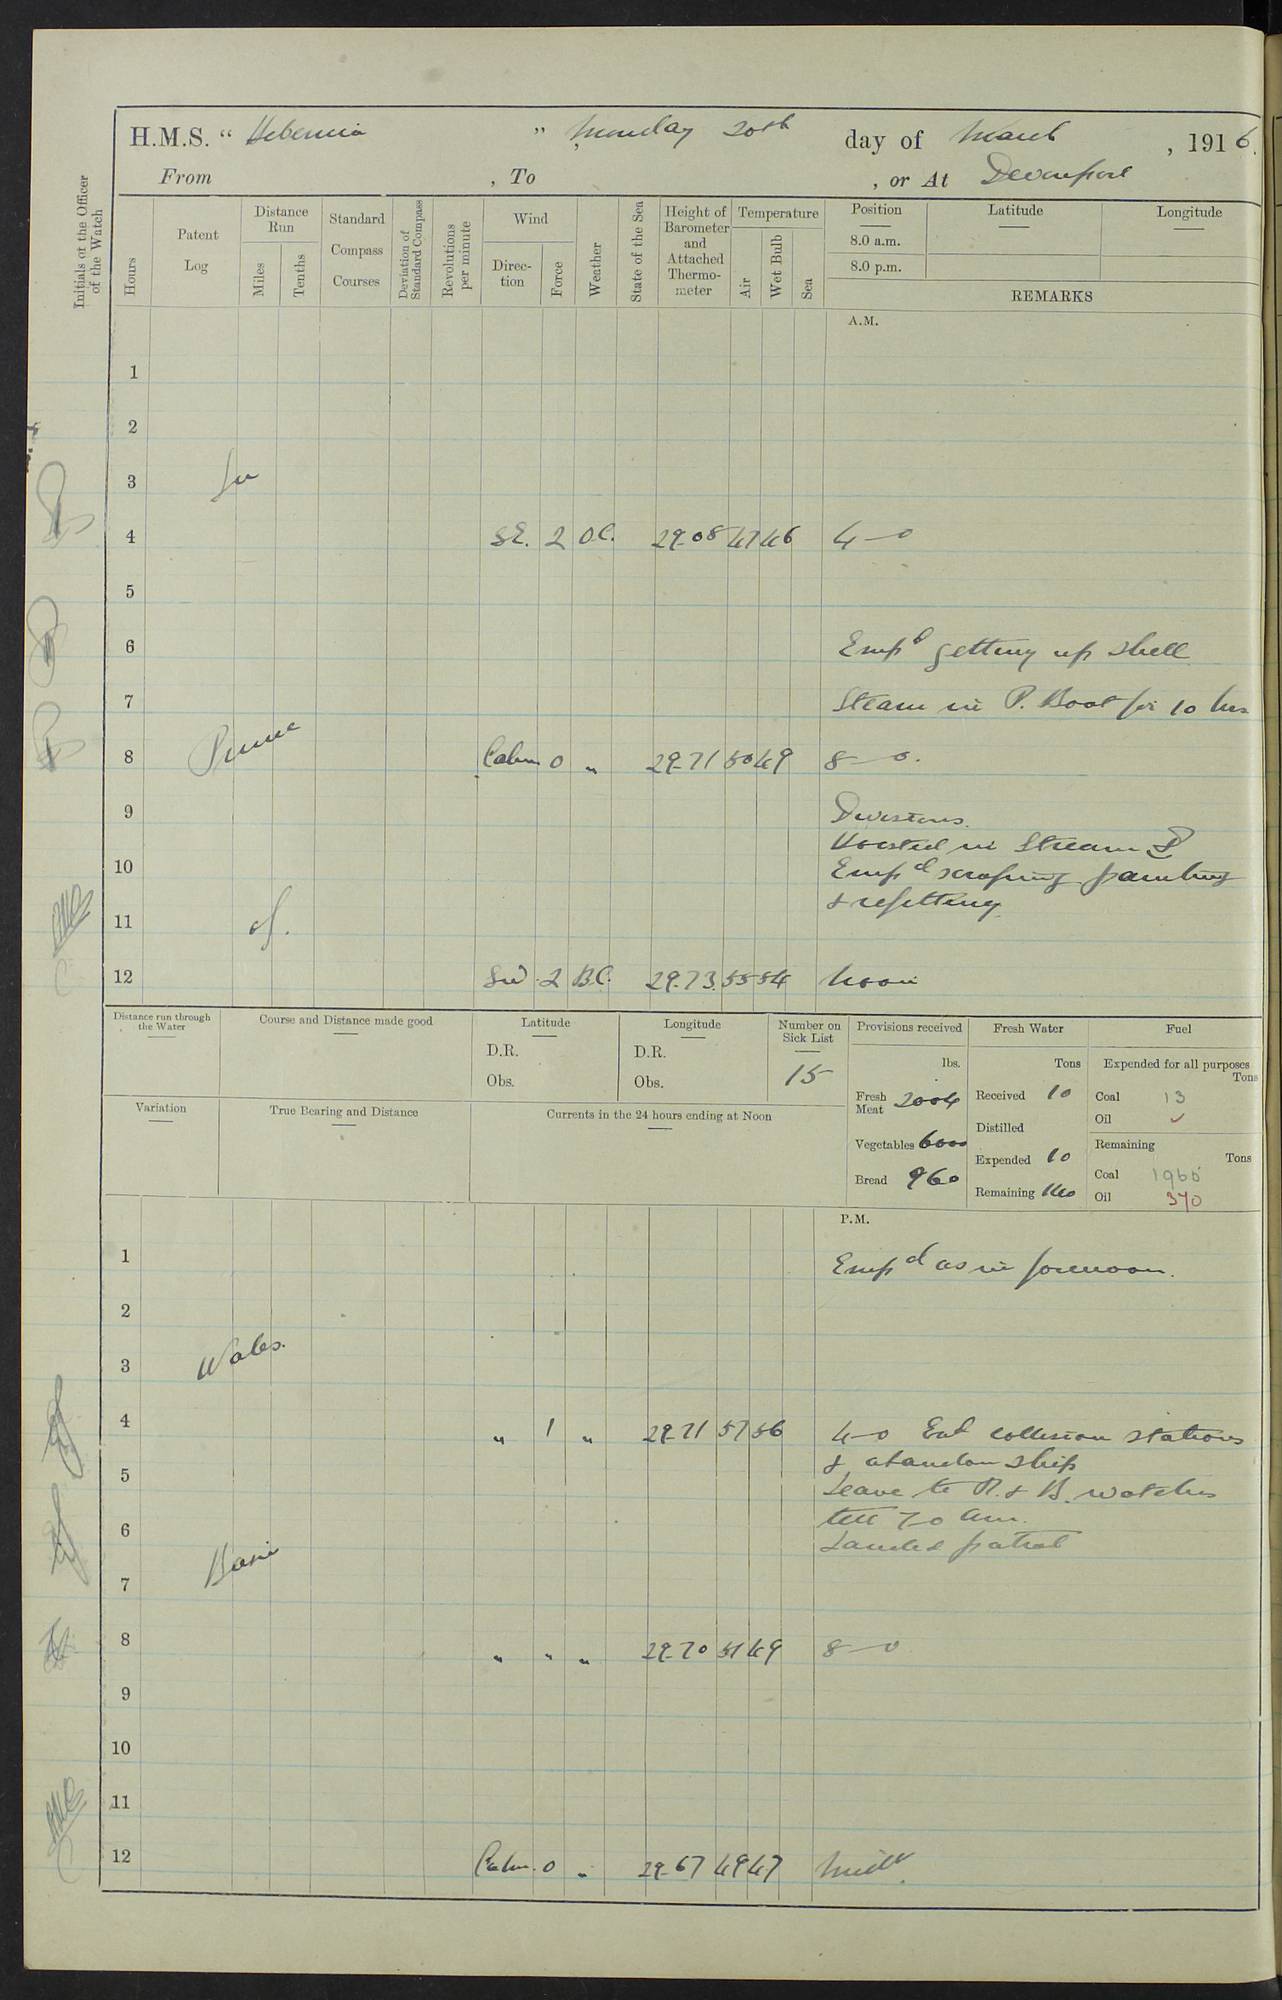 H.M.S. " Hibernia " , Monday 20th day of March , 1916.
From , To , or At Devonport
Initials of the Officer of the Watch
Hours
Patent Log
Distance Run
Miles
Tenths
Standard Compass Courses
Deviation of Standard Compass
Revolutions per minute
Wind
Direction
Force
Weather
State of the Sea
Height of Barometer and Attached Thermometer
Temperature
Air
Wet Bulb
Sea
Position
8.0 a.m.
8.0 p.m.
Latitude
Longitude
REMARKS
A.M.
1
2
3
4 S.E. 2 O.C. 29.08 47 46 4—0
5
6 Empd getting up shell
7 Steam in P. Boat for 10 hrs
8 Calm 0 " 29.71 50 49 8—0.
9 Divisions.
Hoisted in Steam P
10 Empd scraping painting
& refitting
11
12 SW. 2 B.C. 29.73 55 54 Noon
Distance run through the Water
Course and Distance made good
Latitude
D.R.
Obs.
Longitude
D.R.
Obs.
Number on Sick List
15
Provisions received
lbs.
Fresh Meat 2004
Vegetables 6000
Bread 960
Fresh Water
Tons
Received 10
Distilled
Expended 10
Remaining 140
Fuel
Expended for all purposes
Tons
Coal 13
Oil ✓
Remaining
Tons
Coal 1965
Oil 370
Variation
True Bearing and Distance
Currents in the 24 hours ending at Noon
P.M.
1 Empd as in forenoon.
2
3 Wales.
4 " 1 " 29.71 57 56 4—0 Exd collision stations
& abandon ship
5 Leave to R. & B. watches
till 7—0 am.
6 Landed patrol
7
8 " " " 29.70 51 49 8—0
9
10
11
12 Calm. 0 " 29.67 49 47 Midt.